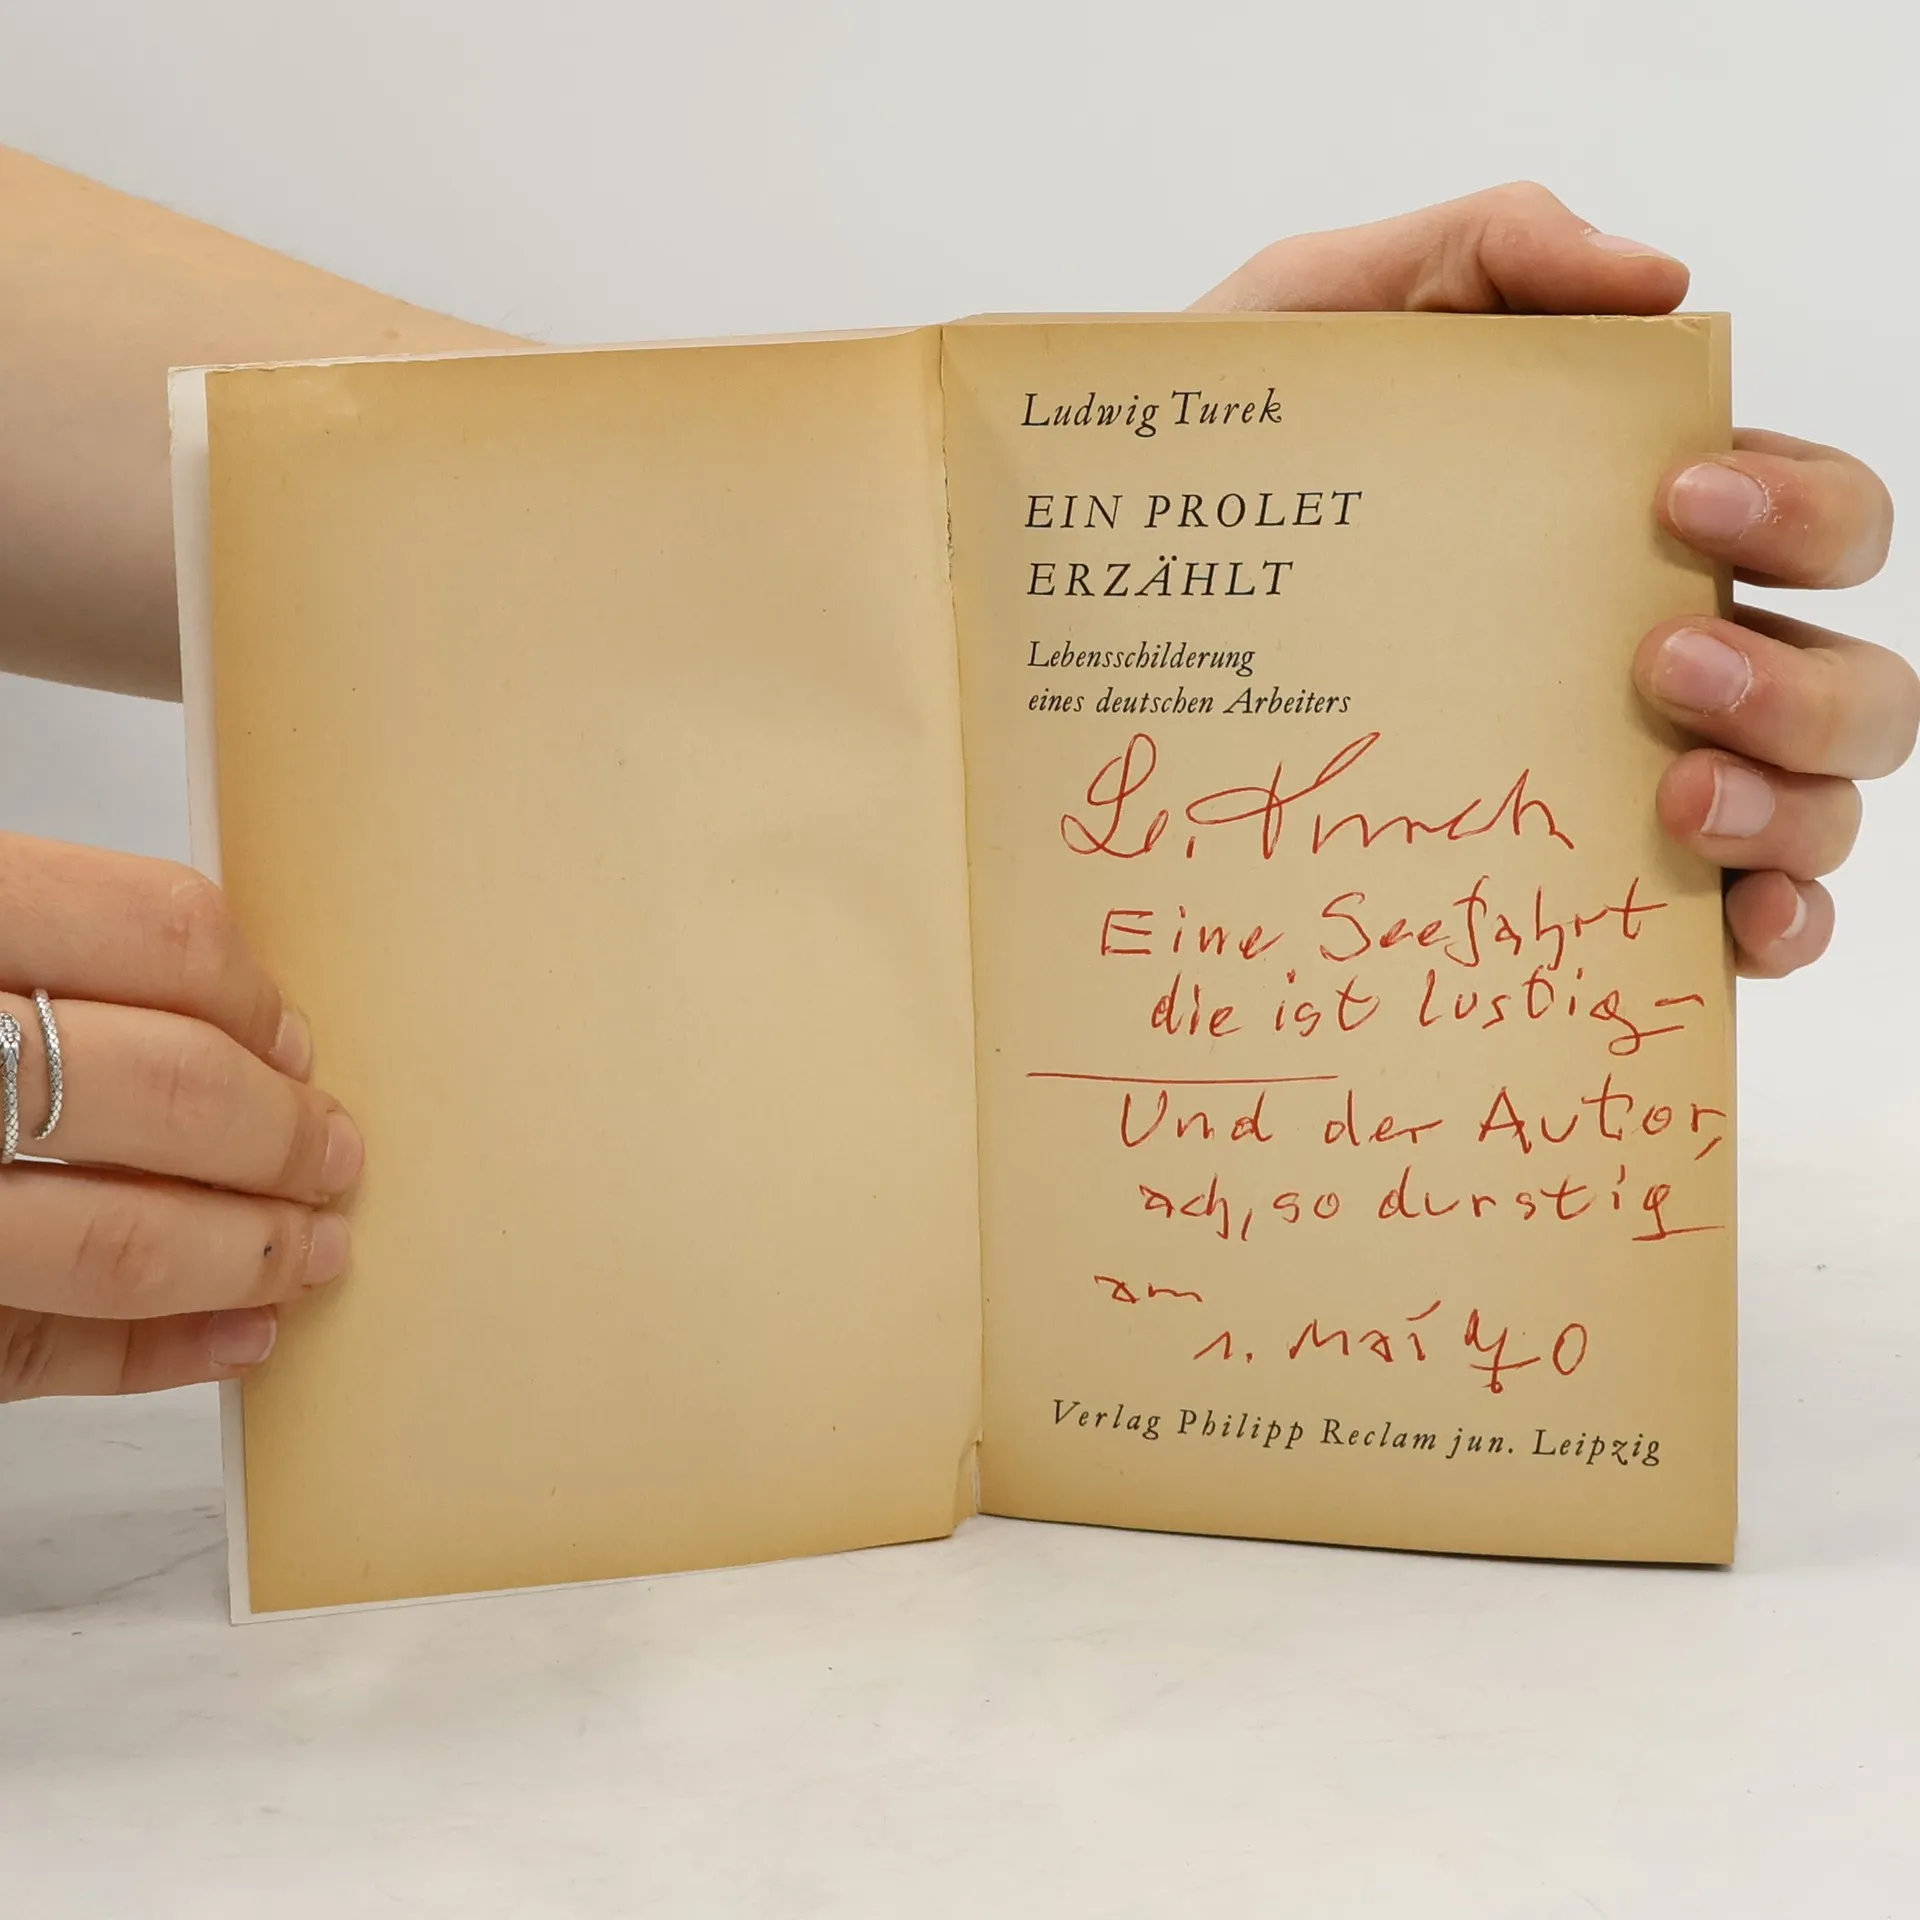 Ludwig Turek
EIN PROLET
ERZÄHLT
Lebensschilderung
eines deutschen Arbeiters
L. Turek
Eine Seefahrt
die ist lustig –
Und der Autor,
ach, so durstig
am
1. Mai 70
Verlag Philipp Reclam jun. Leipzig